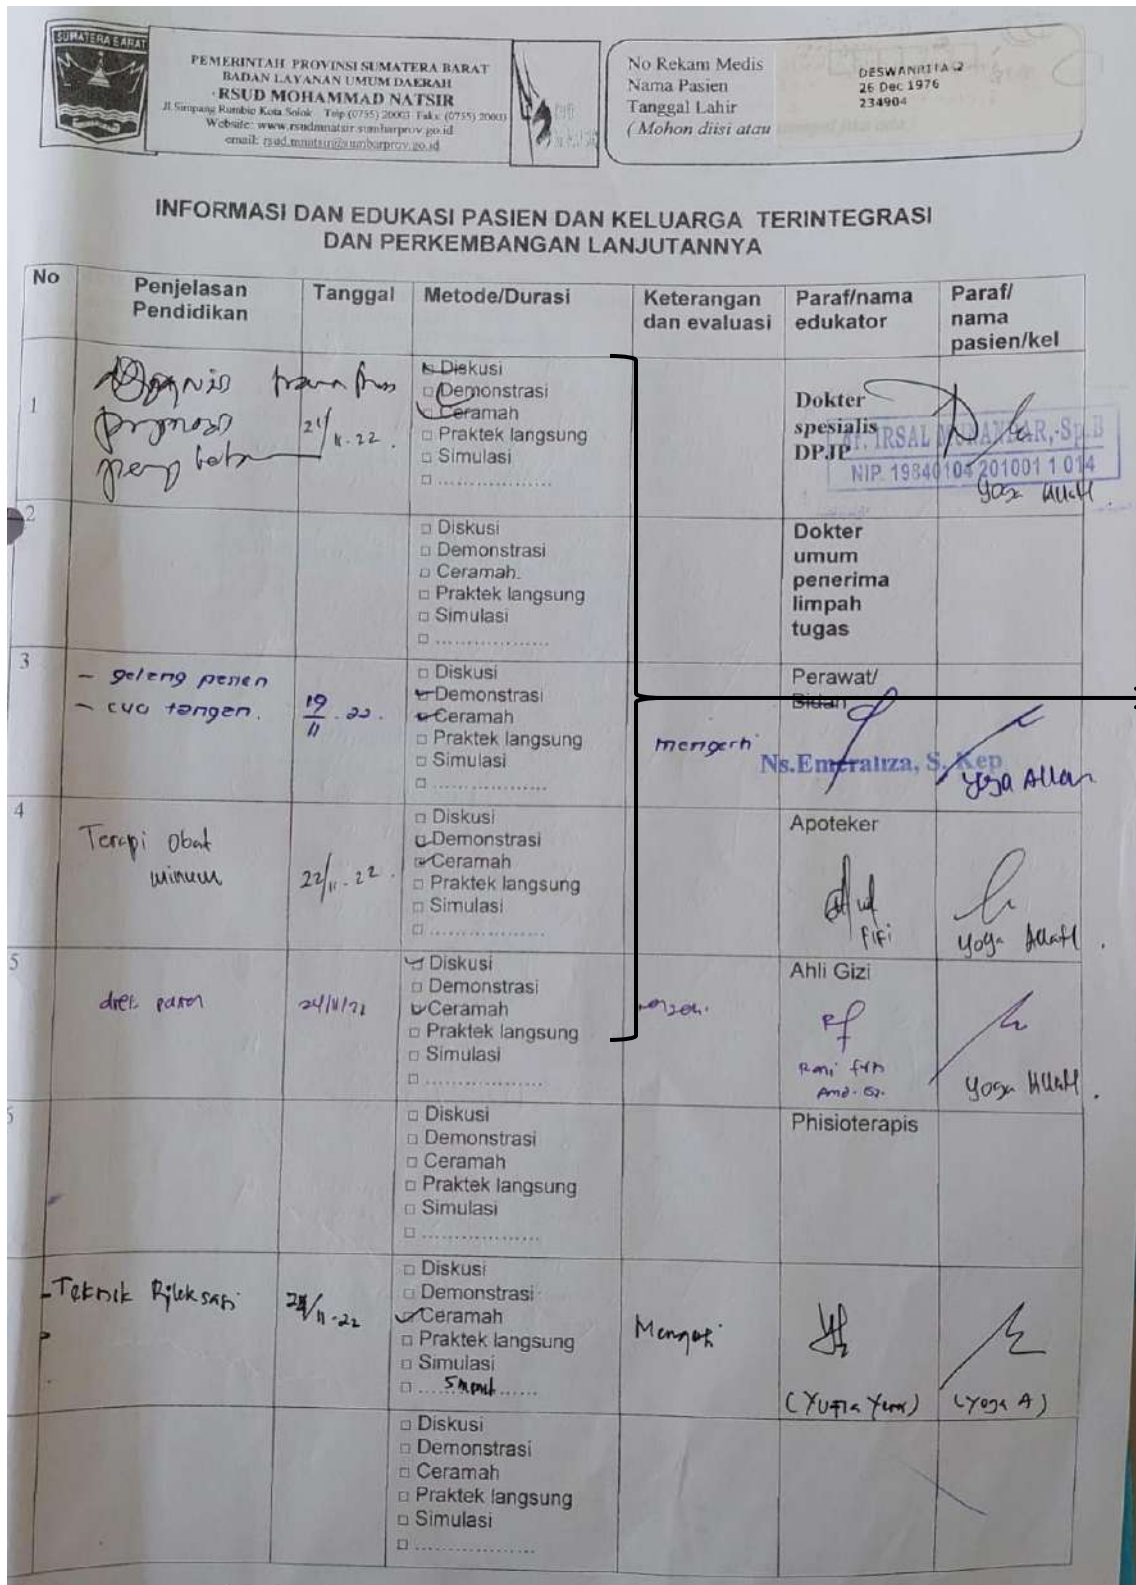 SUMATERA BARAT
PEMERINTAH PROVINSI SUMATERA BARAT
BADAN LAYANAN UMUM DAERAH
RSUD MOHAMMAD NATSIR
Jl.Simpang Rumbio Kota Solok Telp (0755) 20003 Faks (0755) 20003
Website: www.rsudmnatsir.sumbarprov.go.id
email: rsud.mnatsir@sumbarprov.go.id
No Rekam Medis
Nama Pasien
Tanggal Lahir
(Mohon diisi atau
26 Dec 1976
234904
INFORMASI DAN EDUKASI PASIEN DAN KELUARGA TERINTEGRASI
DAN PERKEMBANGAN LANJUTANNYA
No Penjelasan Pendidikan Tanggal Metode/Durasi Keterangan dan evaluasi Paraf/nama edukator Paraf/ nama pasien/kel
1
21/11-22.
□ Diskusi
□ Demonstrasi
□ Ceramah
□ Praktek langsung
□ Simulasi
□ ..................
Dokter
spesialis
DPJP
NIP. 19840104 201001 1 014
Yoga
2
□ Diskusi
□ Demonstrasi
□ Ceramah.
□ Praktek langsung
□ Simulasi
□ ..................
Dokter
umum
penerima
limpah
tugas
3
- geleng pasien
- cuci tangan.
19/11.22.
□ Diskusi
□ Demonstrasi
□ Ceramah
□ Praktek langsung
□ Simulasi
□ ..................
mengerti
Perawat/
Bidan
Ns.Emeraliza, S. Kep
Yoga Allan
4
Terapi Obat
minum
22/11-22.
□ Diskusi
□ Demonstrasi
□ Ceramah
□ Praktek langsung
□ Simulasi
□ ..................
Apoteker
FiFi
Yoga
5
24/11/22
□ Diskusi
□ Demonstrasi
□ Ceramah
□ Praktek langsung
□ Simulasi
□ ..................
Ahli Gizi
Yoga
□ Diskusi
□ Demonstrasi
□ Ceramah
□ Praktek langsung
□ Simulasi
□ ..................
Phisioterapis
- Teknik Rileksasi
□ Diskusi
□ Demonstrasi
□ Ceramah
□ Praktek langsung
□ Simulasi
□ ....5 menit......
Mengerti
(Yoga A)
□ Diskusi
□ Demonstrasi
□ Ceramah
□ Praktek langsung
□ Simulasi
□ ..................